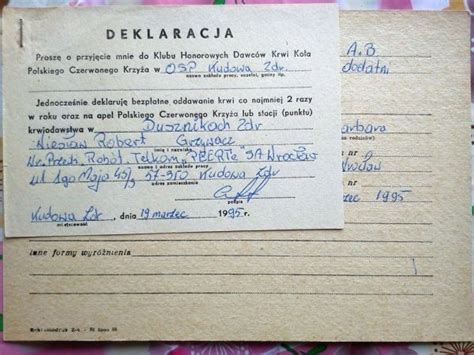 DEKLARACJA
Proszę o przyjęcie mnie do Klubu Honorowych Dawców Krwi Koła
Polskiego Czerwonego Krzyża w OSP Kudowa Zdr.
nazwa zakładu pracy, uczelni, gminy itp.
Jednocześnie deklaruję bezpłatne oddawanie krwi co najmniej 2 razy
w roku oraz na apel Polskiego Czerwonego Krzyża lub stacji (punktu)
krwiodawstwa w Dusznikach Zdr
Wiesław Robert Grzywacz
Przeds. Robot. Telkom. SA Wrocław
nazwa i adres zakładu pracy
ul 1go Maja 45/3 57-350 Kudowa Zdr
adres zamieszkania
podpis
Kudowa Zdr, dnia 19 marzec 1995 r.
miejscowość
A.B
dodatni
arbara
nr
1995
Inne formy wyróżnienia